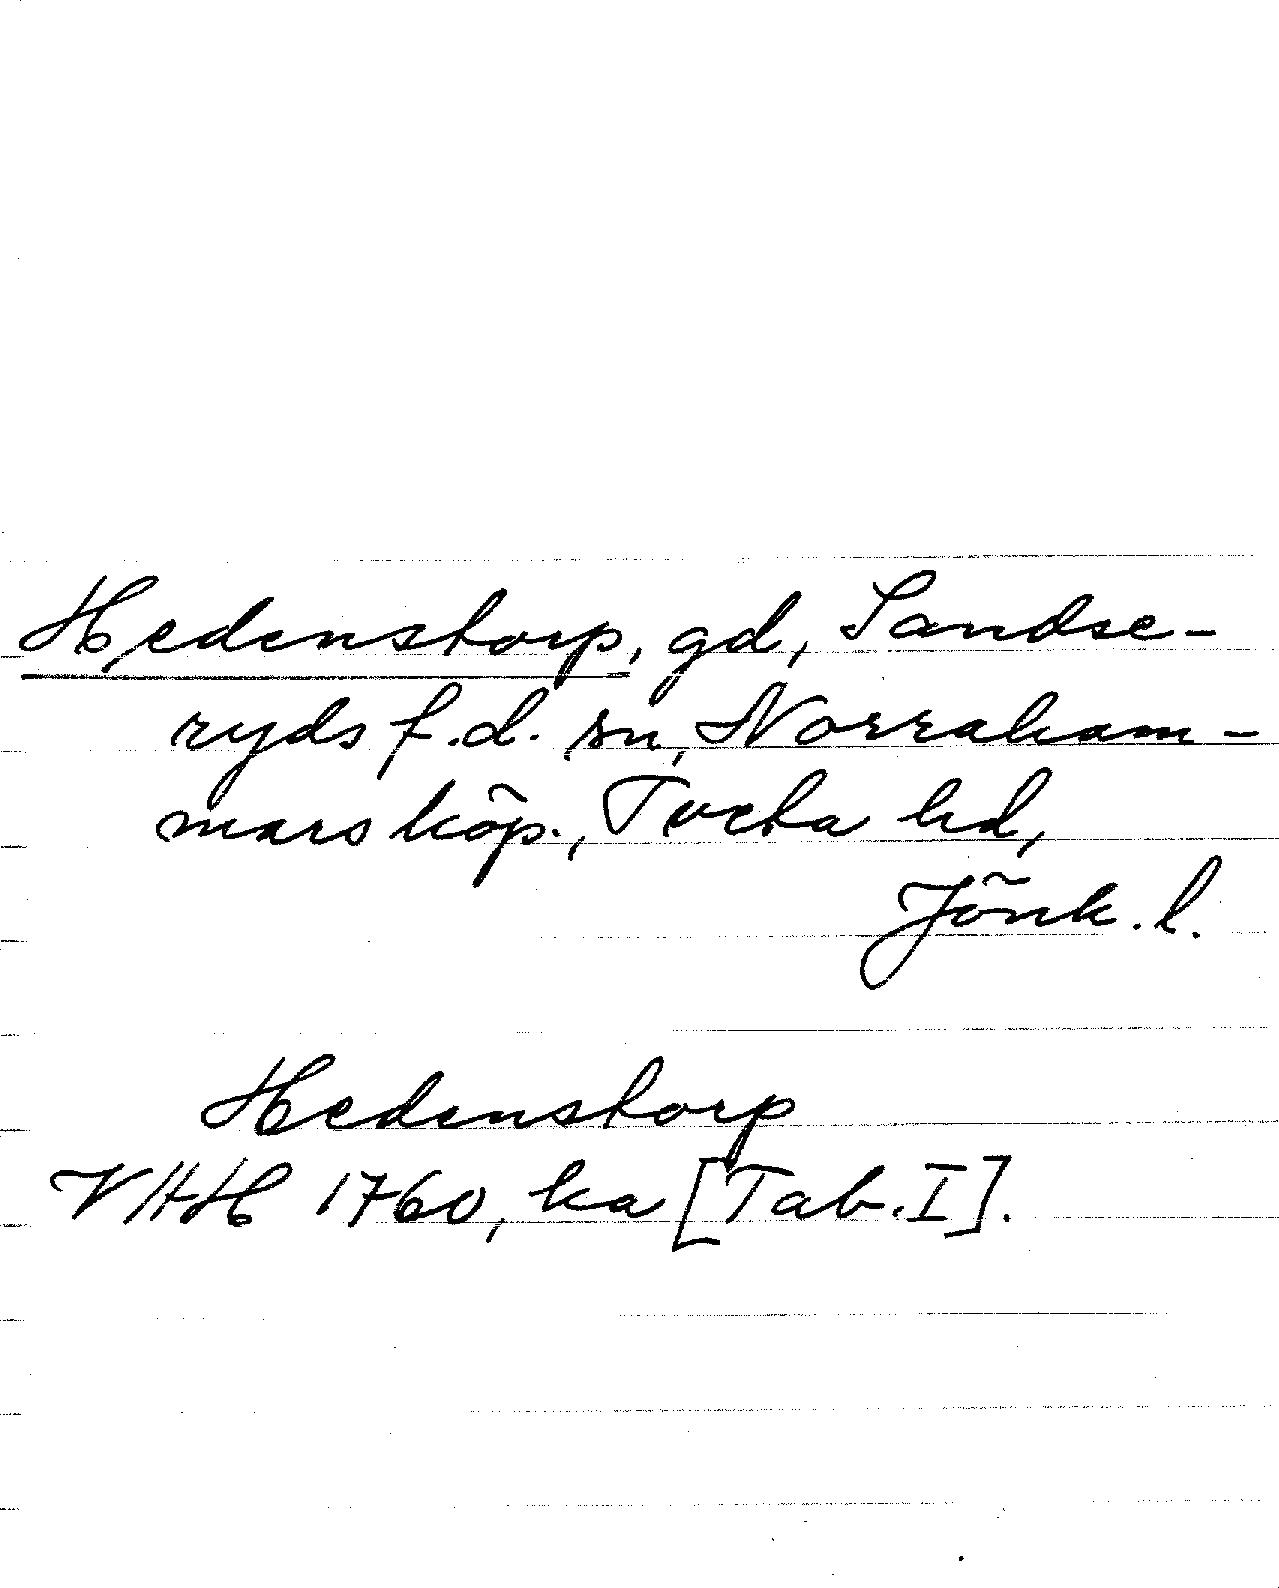 Hedenstorp, gd, Sandse-
ryds f.d. sn, Norraham-
mars köp., Tveta hd,
Jönk. l.
Hedenstorp
VHH 1760, ka [Tab. I].